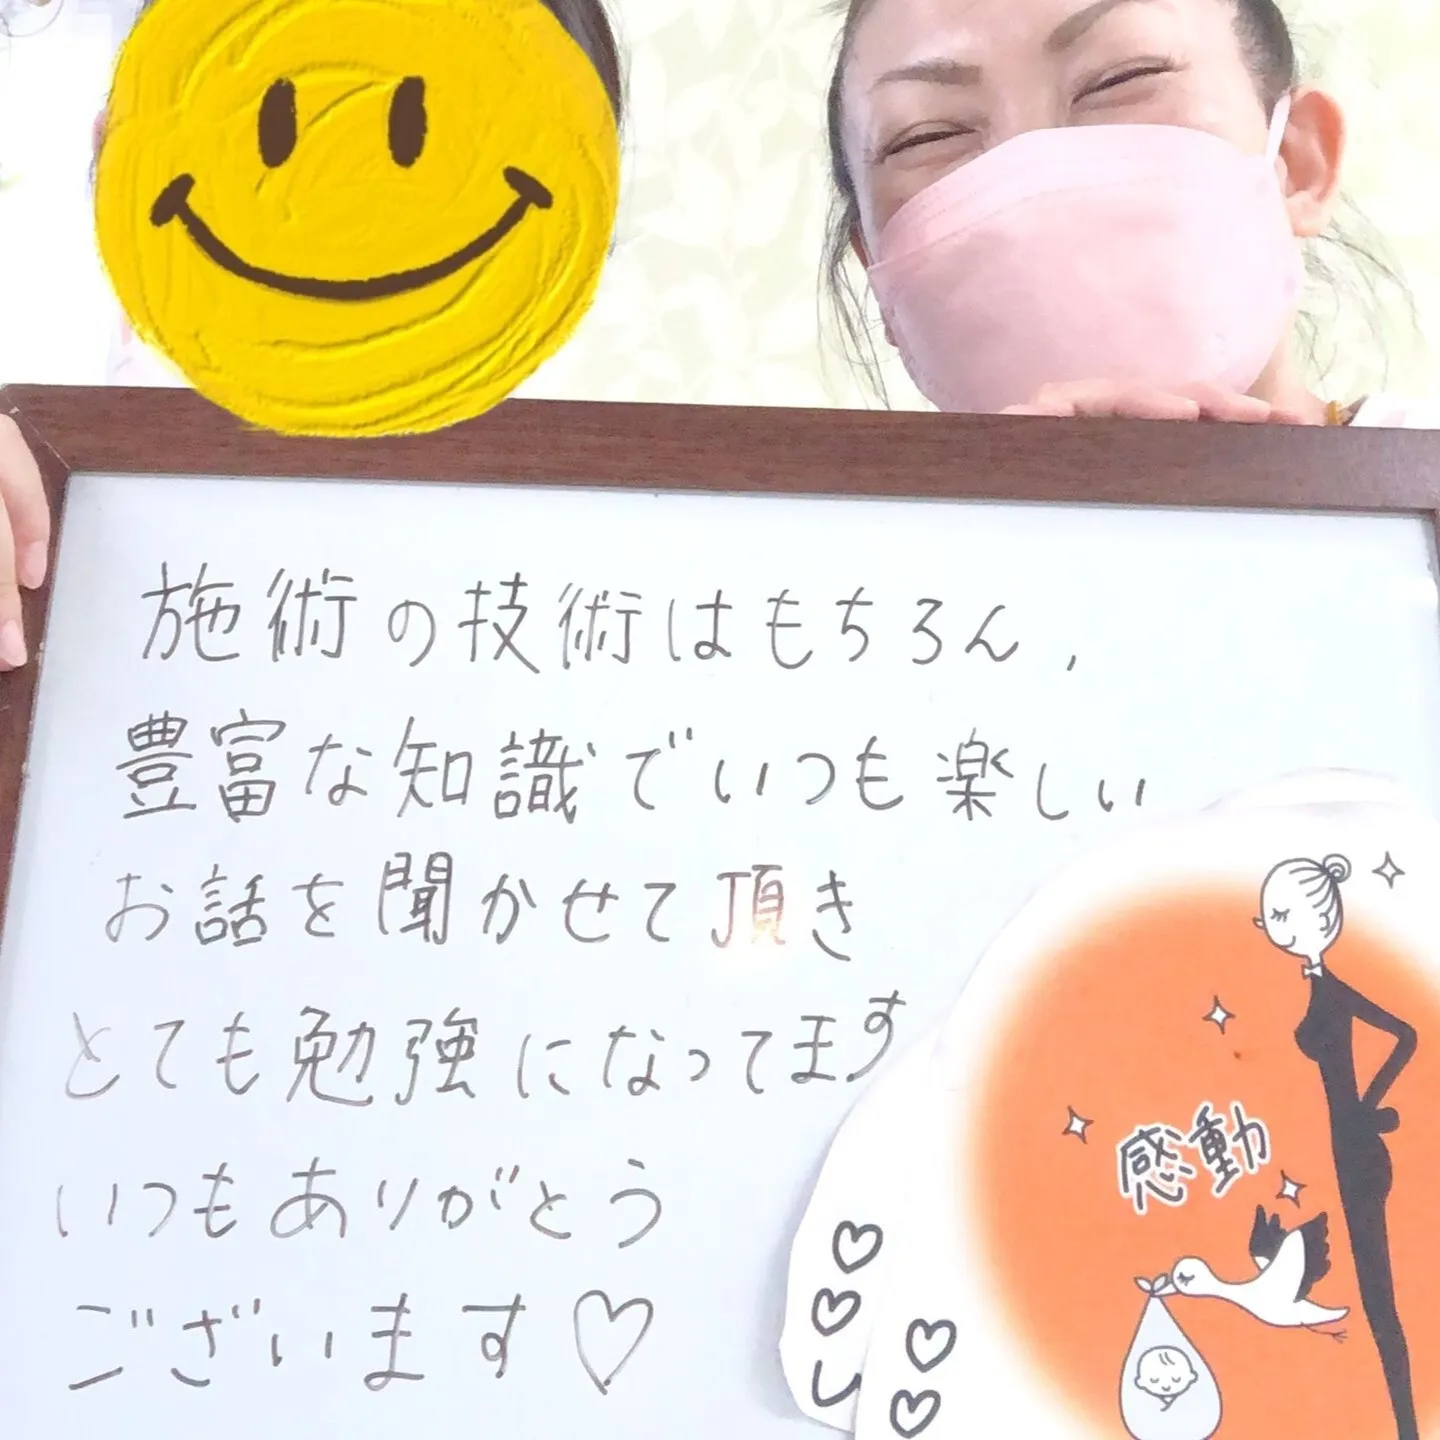 施術の技術はもちろん,
豊富な知識でいつも楽しい
お話を聞かせて頂き
とても勉強になってます
いつもありがとう
ございます♡
感動
♡
♡
し
♡
♡